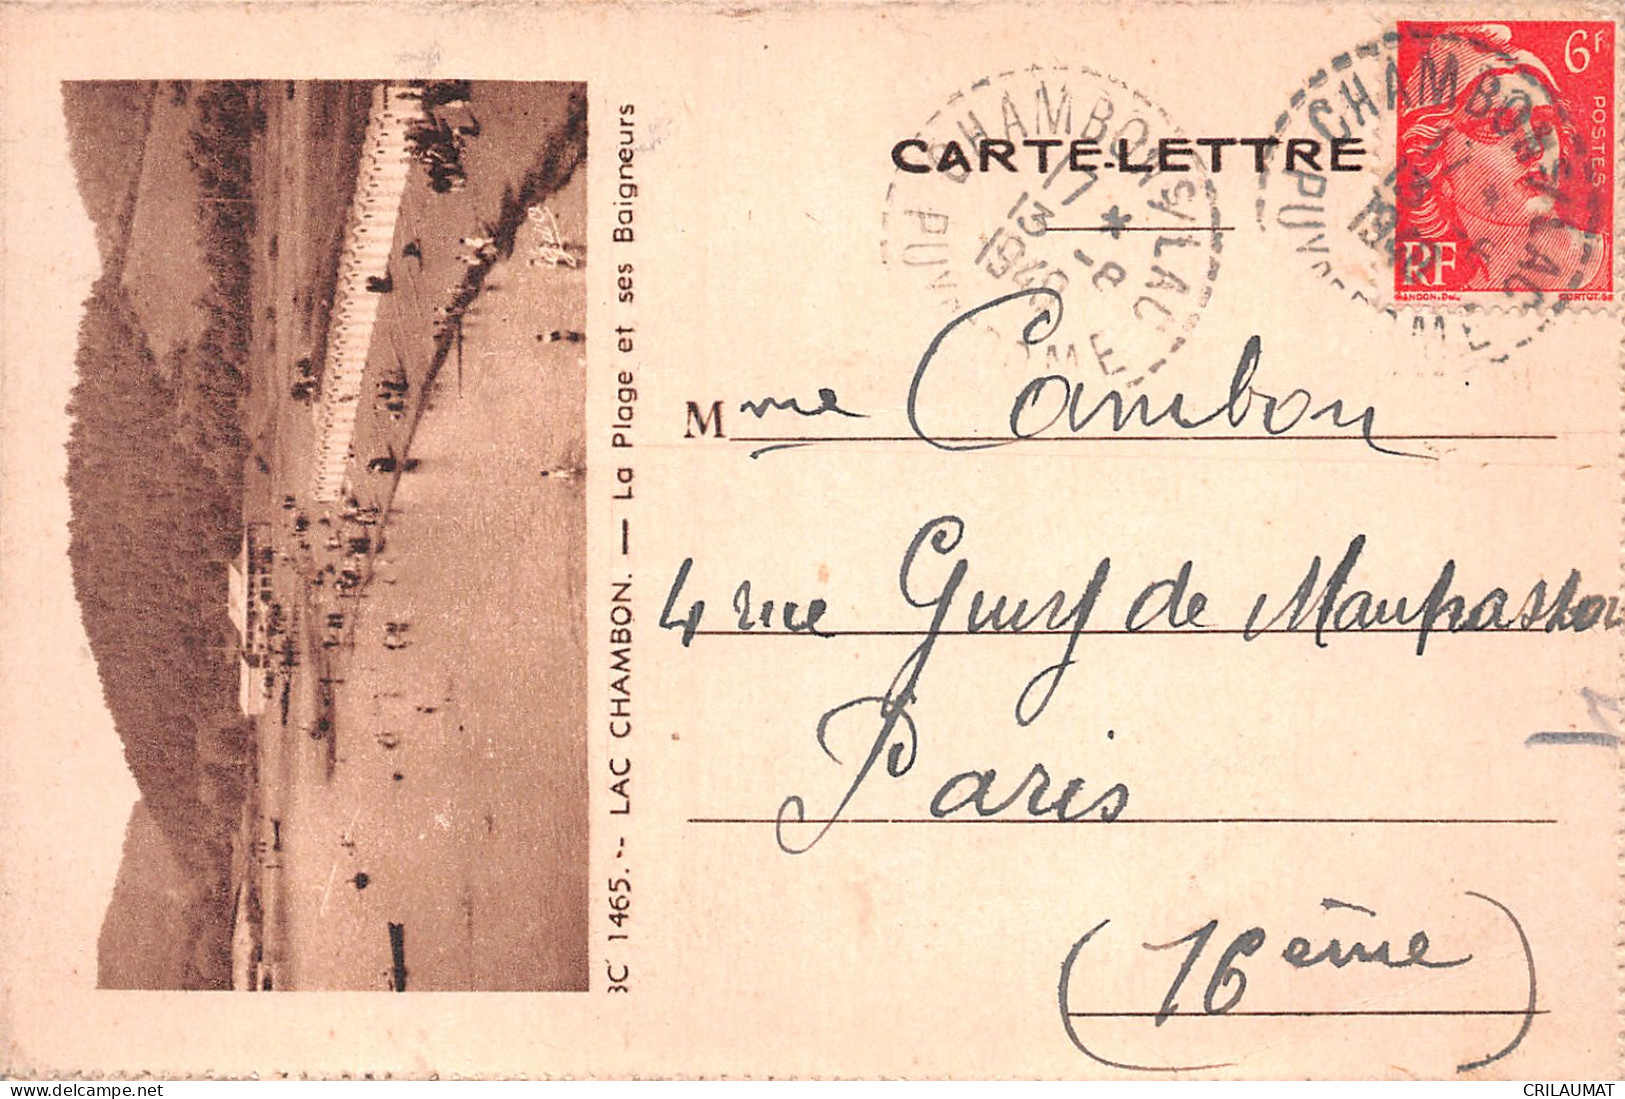 CARTE-LETTRE
6F
POSTES
RF
GANDON.Del.
CORTOT.Sc
CHAMBON S/LAC
17 *
13 - 8
PUY DOME
CHAMBON S/LAC
Mme Cambon
4 rue Guy de Maupassan
Paris
(16ème)
3C' 1465. -- LAC CHAMBON. — La Plage et ses Baigneurs
www.delcampe.net
CRILAUMAT